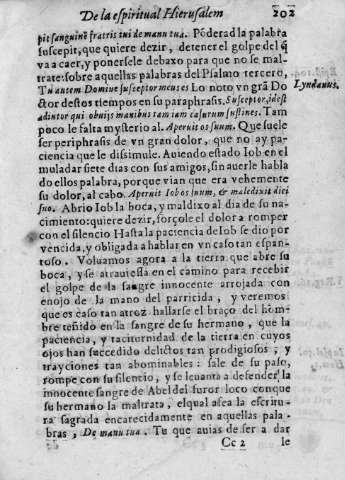 De la espiritual Hierusalem 202
pit sanguinẽ fratris tui de manu tua. Põderad la palabra
suscepit, que quiere dezir, detener el golpe del q̃
va a caer, y ponersele debaxo para que no se mal-
trate: sobre aquellas palabras del Psalmo tercero,
Tu autem Domine susceptor meus es Lo noto vn grã Do
Lyndanus.
ctor destos tiempos en su paraphrasis. Susceptor, idest
adiutor qui obuijs manibus tam iam casurum sustines. Tam
poco le falta mysterio al. Aperuit os suum. Que suele
ser periphrasis de vn gran dolor, que no ay pa-
ciencia que le dissimule. Auiendo estado Iob en el
muladar siete dias con sus amigos, sin auerle habla
do ellos palabra, porque vian que era vehemente
su dolor, al cabo. Aperuit Iob os suum, & maledixit diei
suo. Abrio Iob la boca, y maldixo al dia de su na-
cimiento: quiere dezir, forçole el dolor a romper
con el silencio Hasta la paciencia de Iob se dio por
vencida, y obligada a hablar en vn caso tan espan-
toso. Voluamos agora a la tierra que abre su
boca, y se atrauiessa en el camino para recebir
el golpe de la sangre innocente arrojada con
enojo de la mano del parricida, y veremos
que es caso tan atroz hallarse el braço del hom-
bre teñido en la sangre de su hermano, que la
paciencia, y taciturnidad de la tierra en cuyos
ojos han succedido delictos tan prodigiosos, y
trayciones tan abominables: sale de su paso,
rompe con su silencio, y se leuanta a defender la
innocente sangre de Abel del furor loco con que
su hermano la maltrata, el qual afea la escritu-
ra sagrada encarecidamente en aquellas pala-
bras, De manu tua. Tu que auias de ser a dar
Cc 2 le